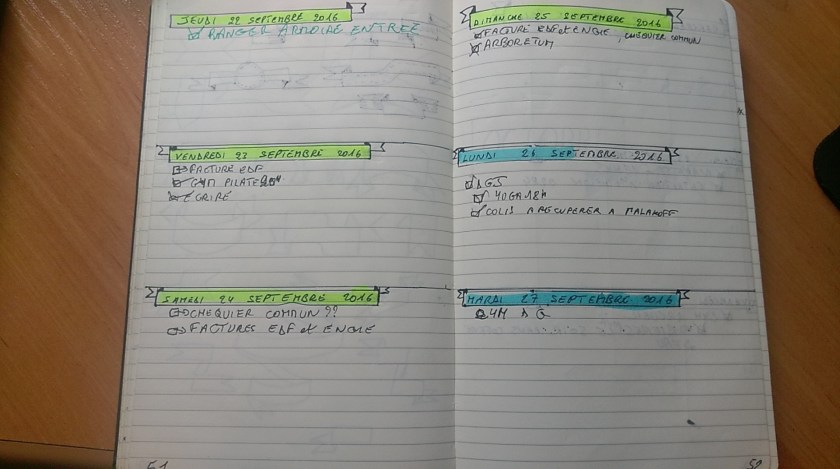 JEUDI 22 SEPTEMBRE 2016
RANGER ARMOIRE ENTREE
VENDREDI 23 SEPTEMBRE 2016
FACTURE EDF
GYM PILATES
ECRIRE
SAMEDI 24 SEPTEMBRE 2016
CHEQUIER COMMUN ??
FACTURES EDF et ENGIE
51
DIMANCHE 25 SEPTEMBRE 2016
FACTURE EDF et ENGIE, CHEQUIER COMMUN
ARBORETUM
LUNDI 26 SEPTEMBRE 2016
AGS
YOGA 18H
COLIS A RECUPERER A MALAKOFF
MARDI 27 SEPTEMBRE 2016